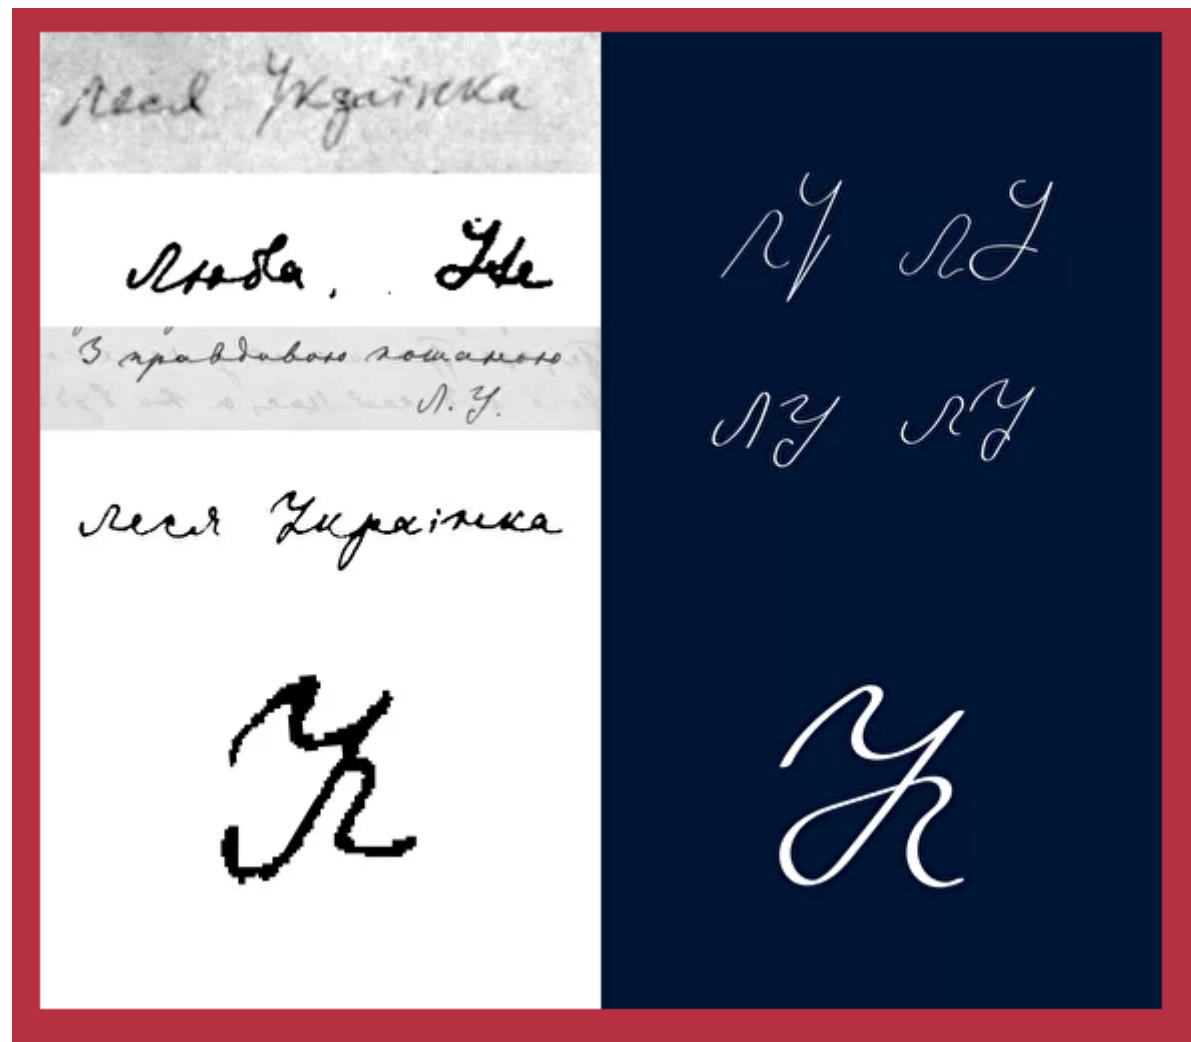 Леся Українка
Люба, Не
З правдивою пошаною
Л. У.
Леся Українка
ЛУ ЛУ
ЛУ ЛУ